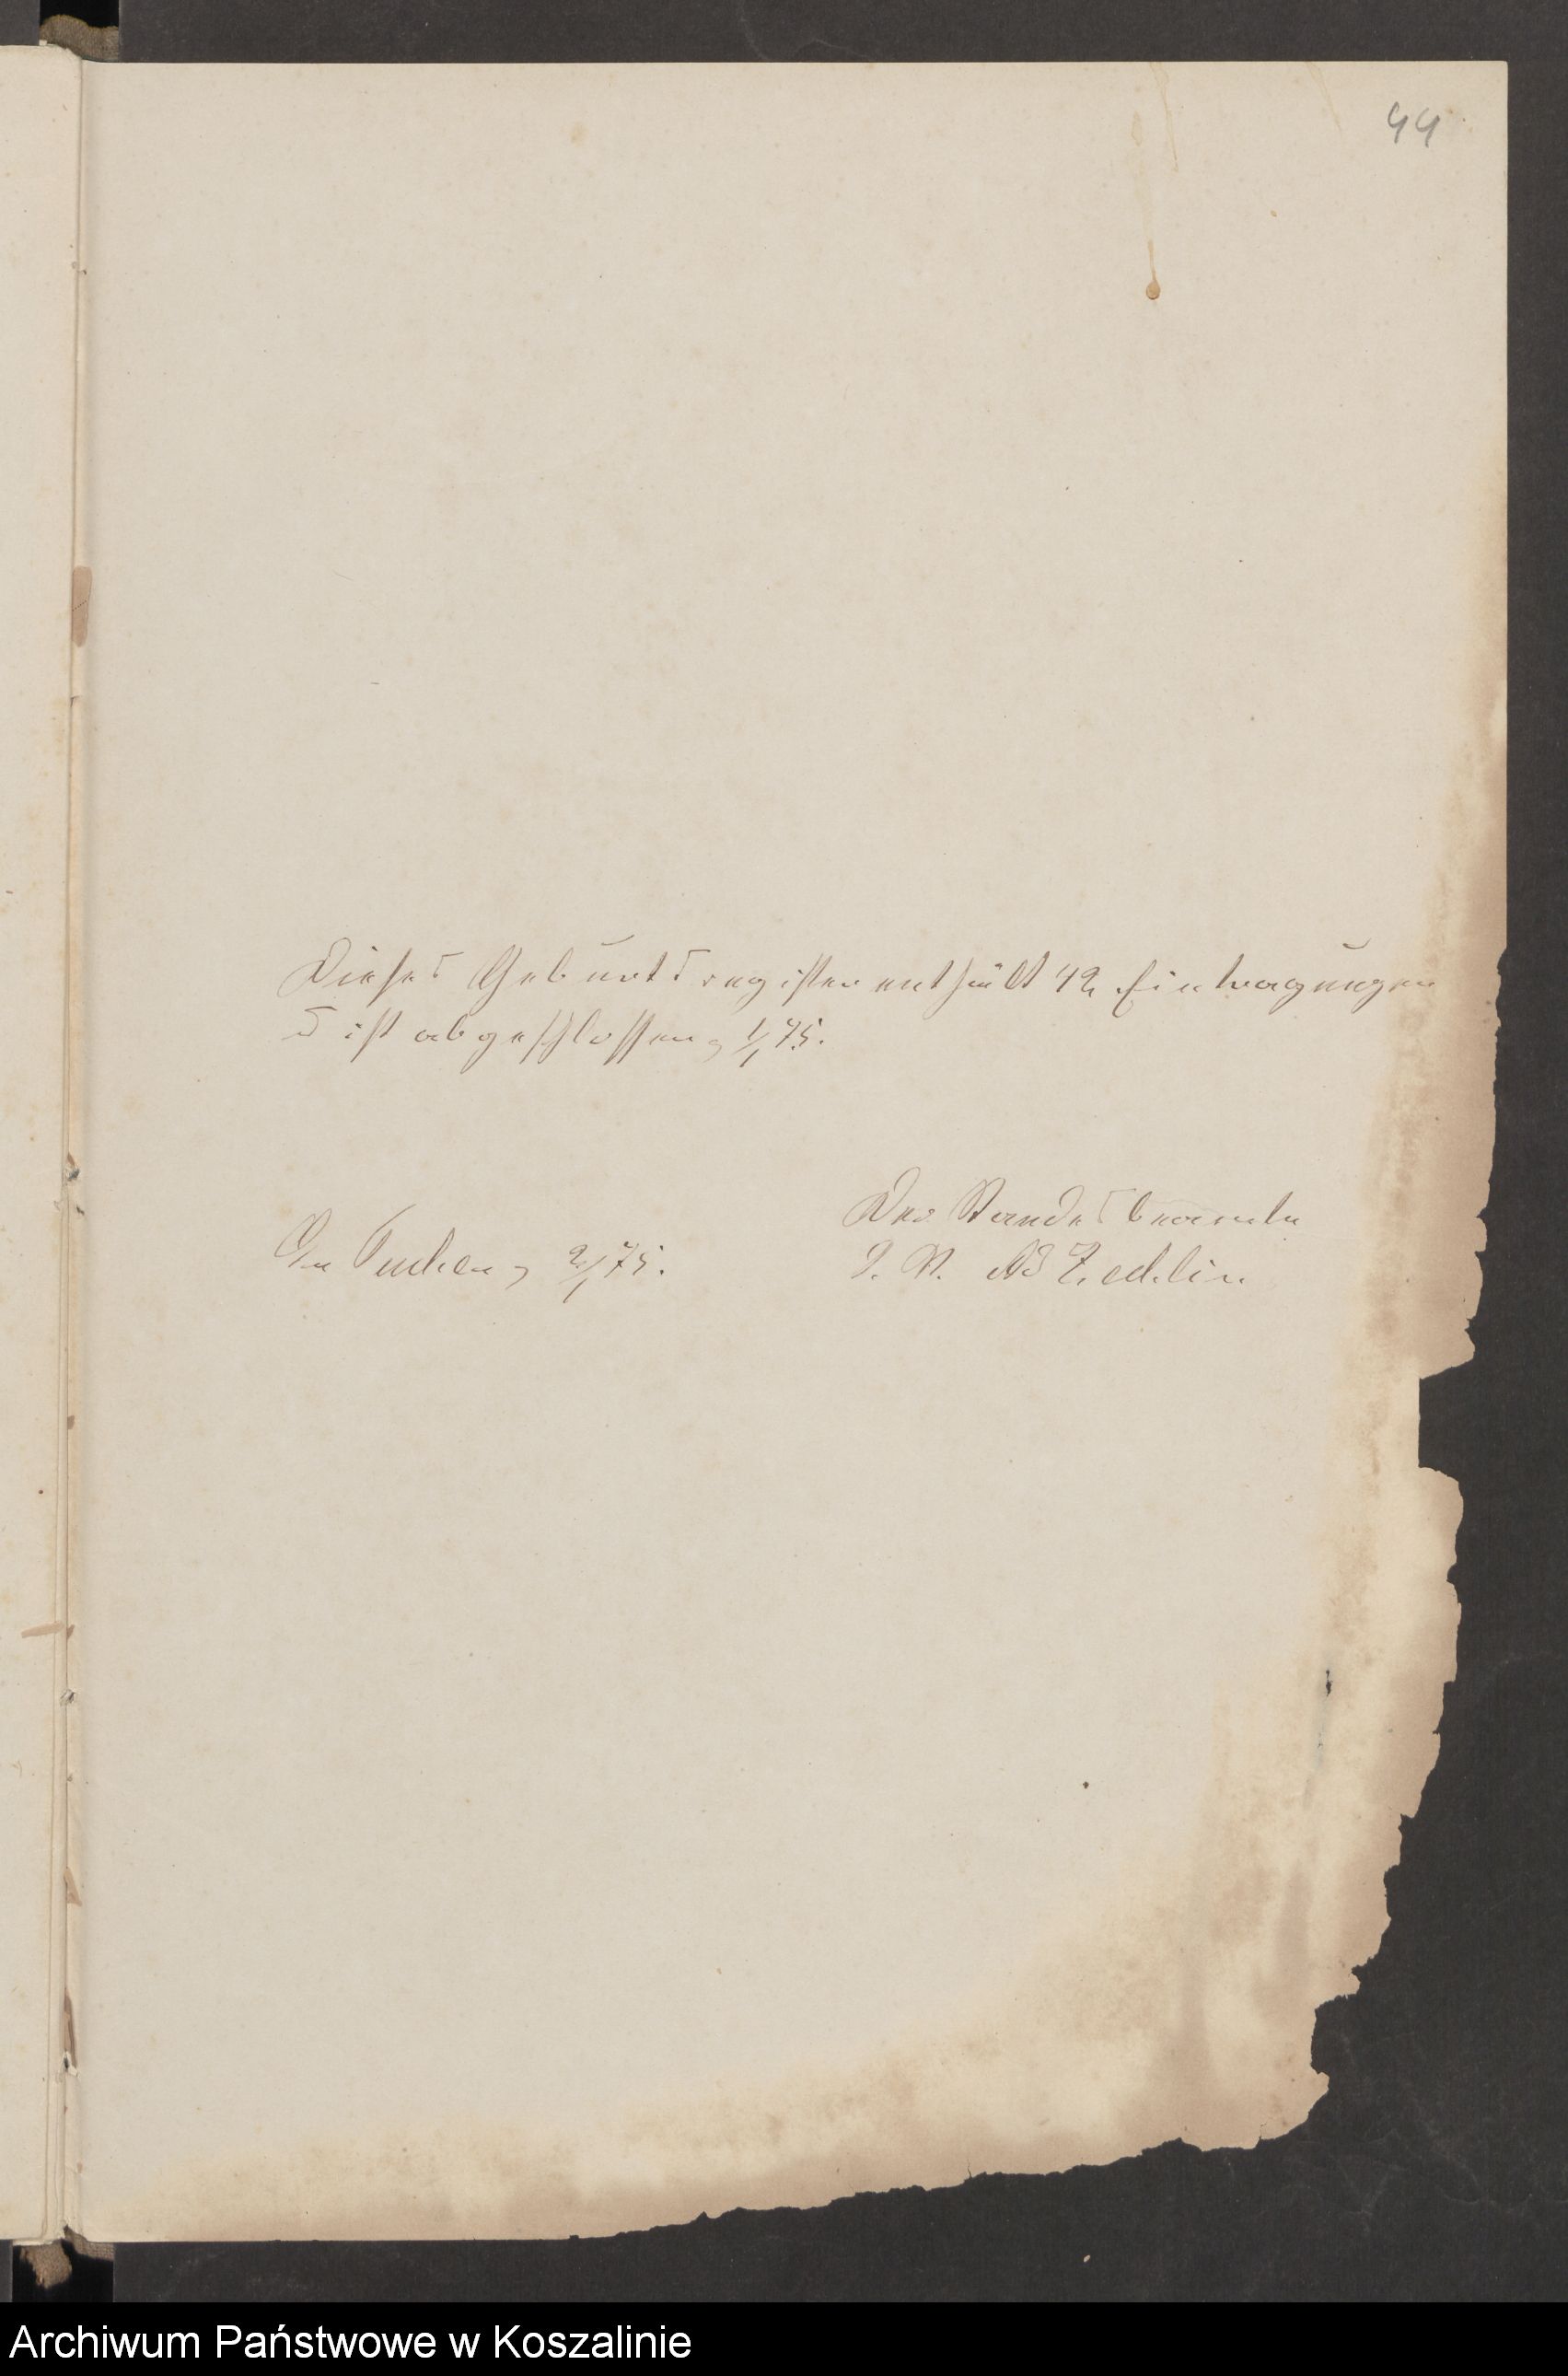 44
Dieses Geburtsregister enthält 42 Eintragungen
ist abgeschlossen, 1/1 75.
Der Standesbeamte
2/1 75.
Zechlin
Archiwum Państwowe w Koszalinie